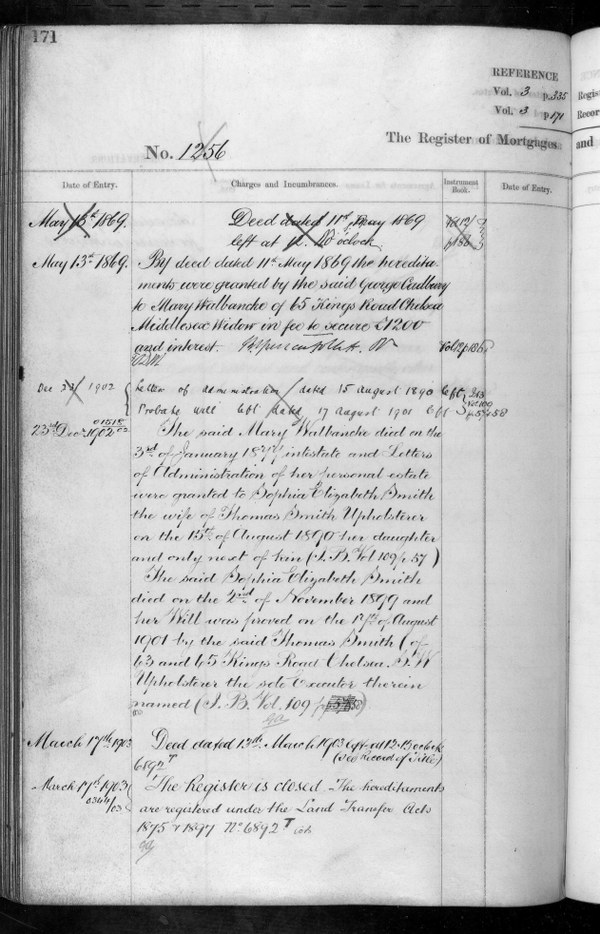 171
REFERENCE
Vol. 3 p.335
Vol. 3 p.171
The Register of Mortgages
No. 1256
Date of Entry. Charges and Incumbrances. Instrument Book. Date of Entry.
May 13th 1869. Deed dated 11th May 1869
left at o'clock
May 13th 1869. By deed dated 11th May 1869 the heredita-
ments were granted by the said George Cadbury
to Mary Walbancke of 65 Kings Road Chelsea
Middlesex Widow in fee to secure £1200
and interest.
Dec 23 1902 Letters of administration dated 15 August 1890 left
Probate will left dated 17 August 1901 left
23rd Dec. 1902 The said Mary Walbancke died on the
3rd of January intestate and Letters
of Administration of her personal estate
were granted to Sophia Elizabeth Smith
the wife of Thomas Smith Upholsterer
on the 15th of August 1890 her daughter
and only next of kin (I. B. Vol 109 p 57)
The said Sophia Elizabeth Smith
died on the 2nd of November 1899 and
her Will was proved on the 17th of August
1901 by the said Thomas Smith (of
63 and 65 Kings Road Chelsea S. W
Upholsterer the sole Executor therein
named (I. B. Vol. 109
March 17th 1903 Deed dated 13th March 1903 left at 12.15 oclock
6892T (see Record of Title)
March 17th 1903 The Register is closed. The hereditaments
are registered under the Land Transfer Acts
1875 & 1897 No 6892T
Regis
Recor
and